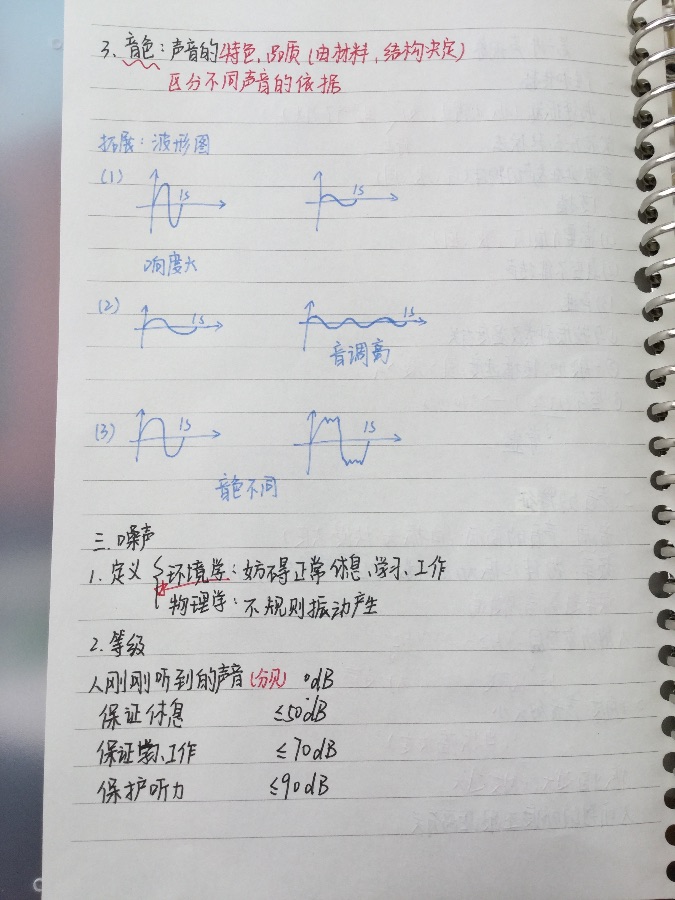 3、音色：声音的特色、品质（由材料，结构决定）
区分不同声音的依据
拓展：波形图
(1) 1S 1S
响度大
(2) 1S 1S
音调高
(3) 1S 1S
音色不同
三、噪声
1. 定义 环境学：妨碍正常休息、学习、工作
物理学：不规则振动产生
2. 等级
人刚刚听到的声音(分贝) 0dB
保证休息 ≤50dB
保证学习、工作 ≤70dB
保护听力 ≤90dB